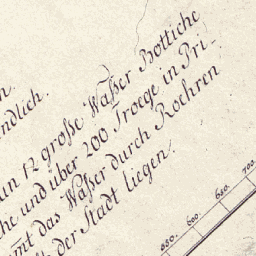 n.
ndlich.
un 12 große Waßer Bottiche
he und über 200 Troege in Pri-
mt das Waßer durch Roehren
der Stadt liegen.
550. 600. 650. 700.